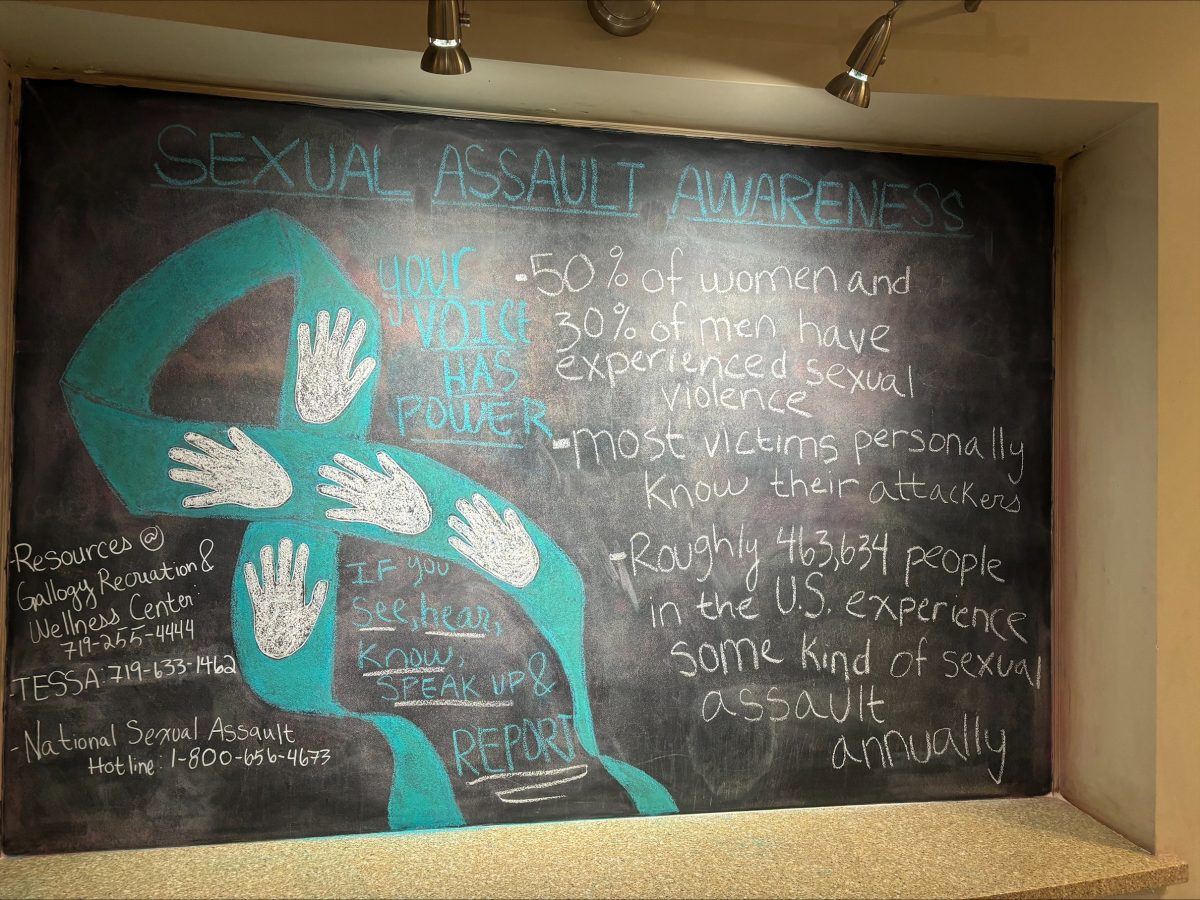 SEXUAL ASSAULT AWARENESS
your
VOICE
HAS
POWER
-50% of women and
30% of men have
experienced sexual
violence
-most victims personally
know their attackers
-Roughly 463,634 people
in the U.S. experience
some kind of sexual
assault
annually
IF you
see, hear,
know,
SPEAK UP &
REPORT
-Resources @
Gallogy Recreation &
Wellness Center:
719-255-4444
-TESSA: 719-633-1462
- National Sexual Assault
Hotline: 1-800-656-4673